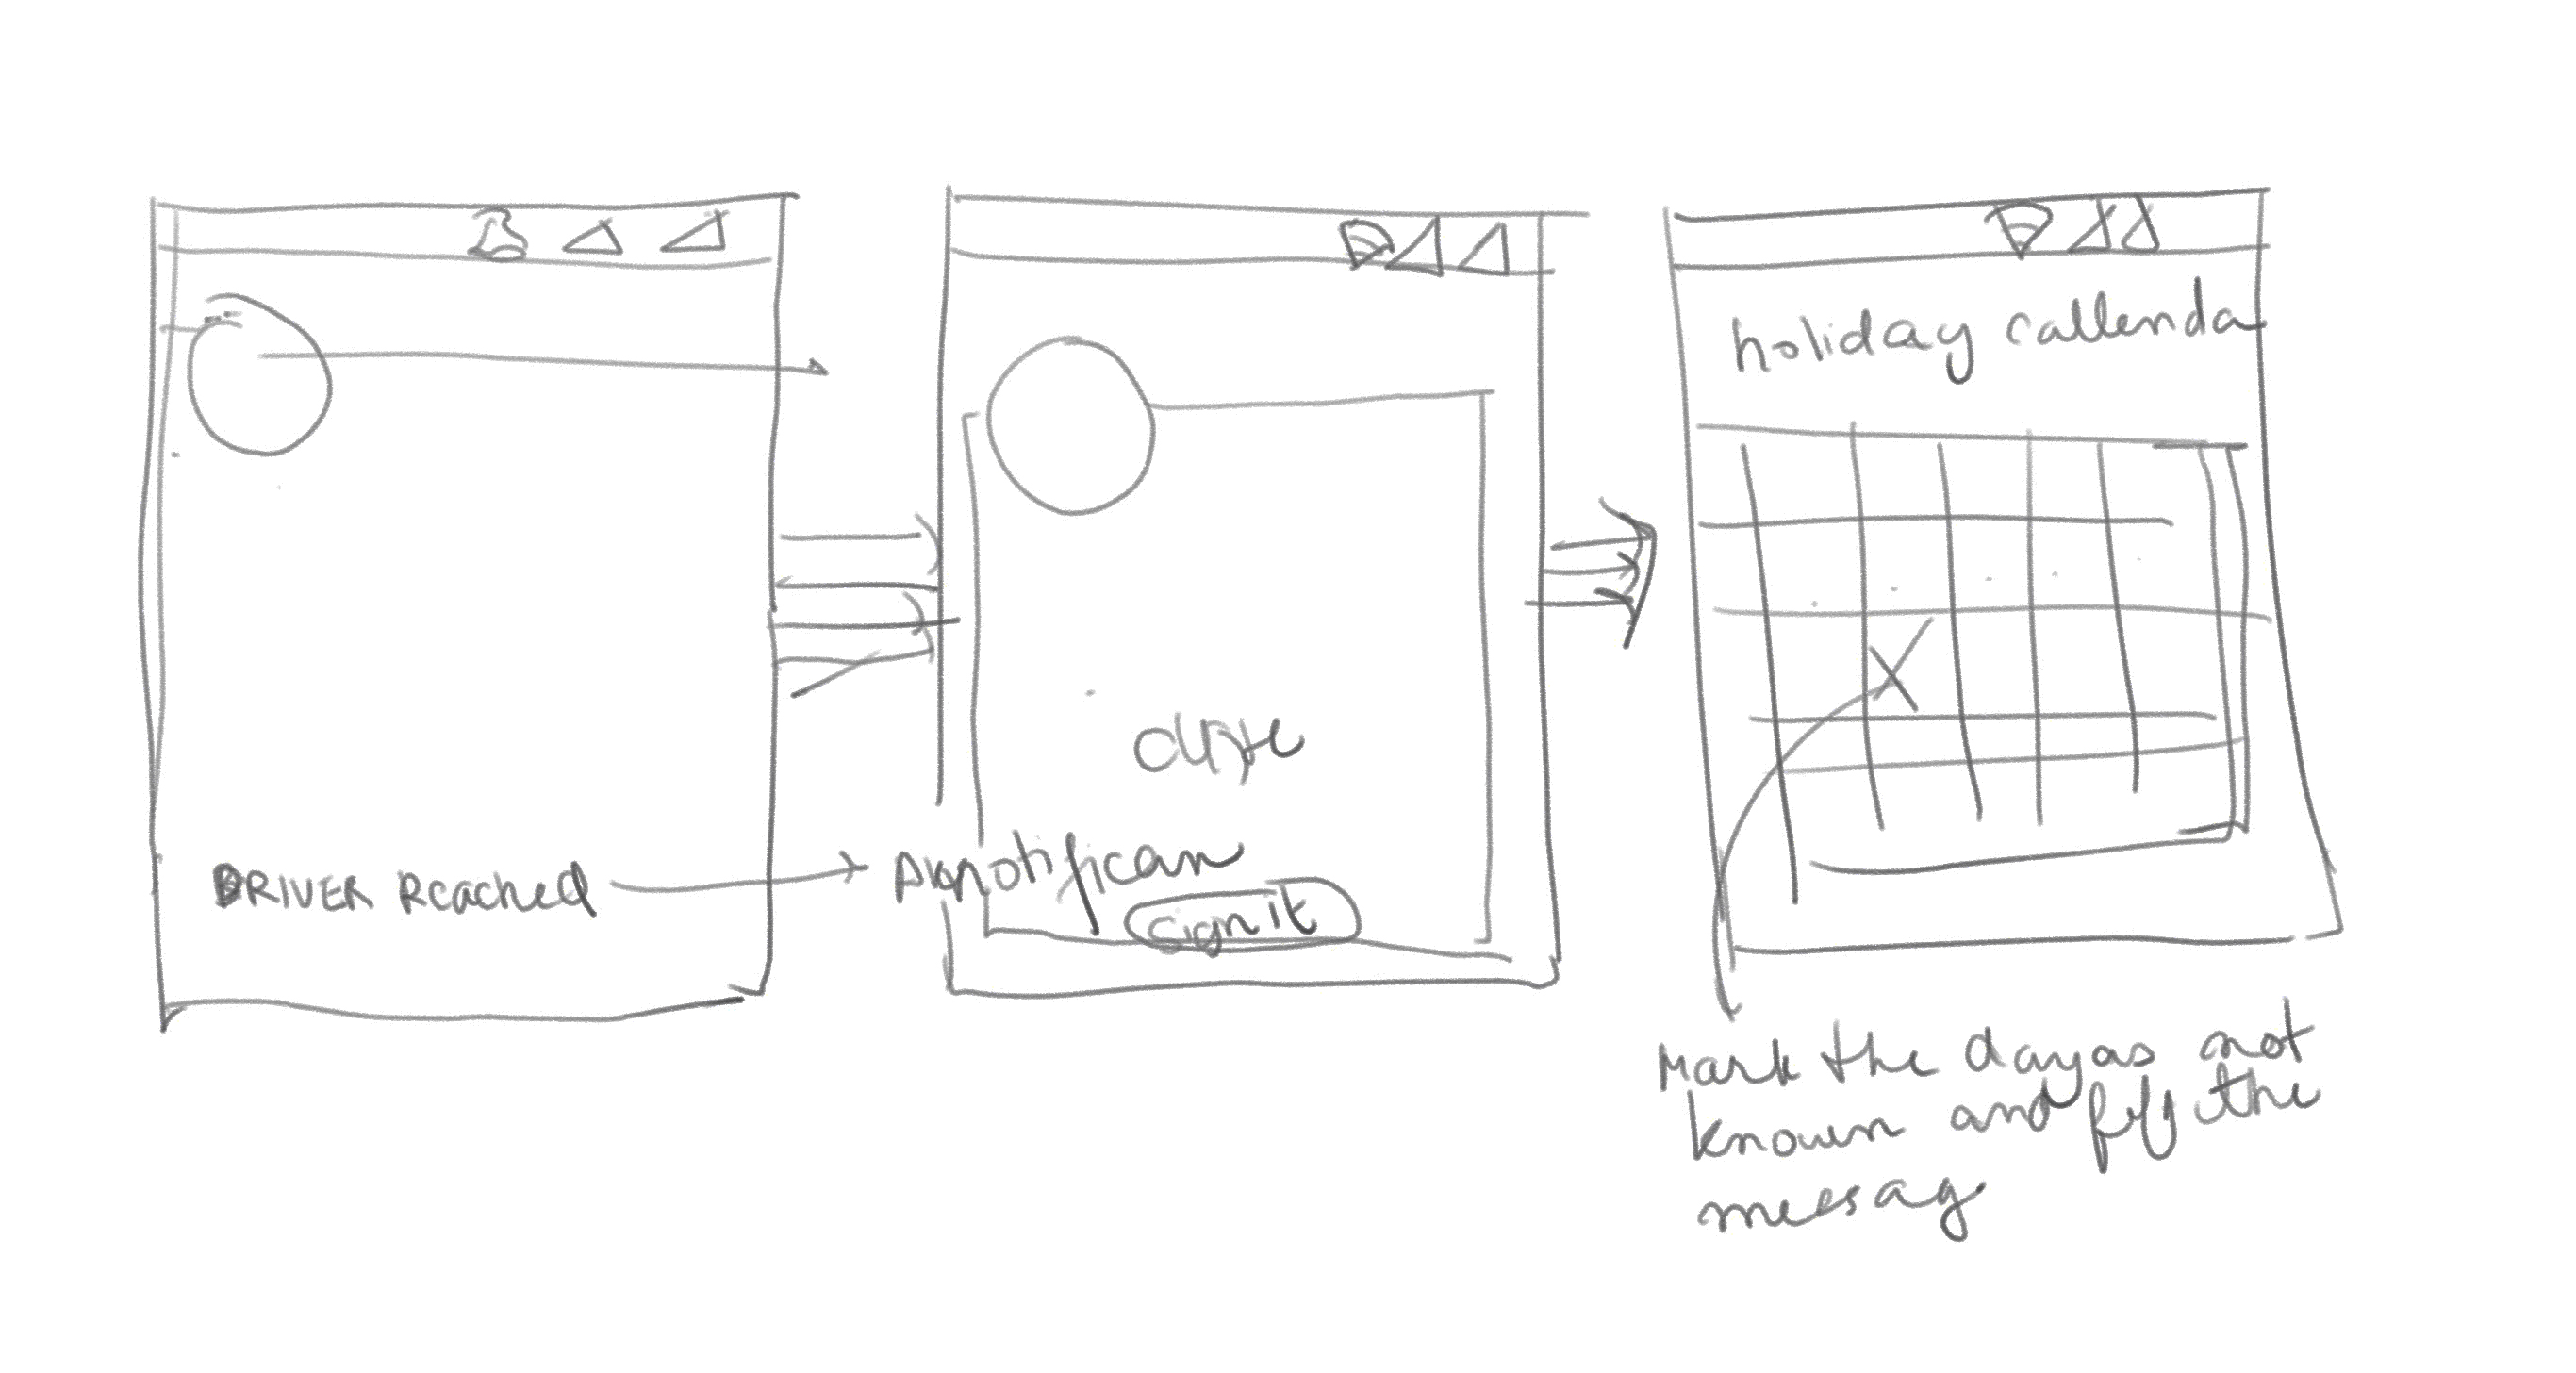 DRIVER Reached
notifican
sign it
holiday callenda
Mark the day as not
known and the
messag